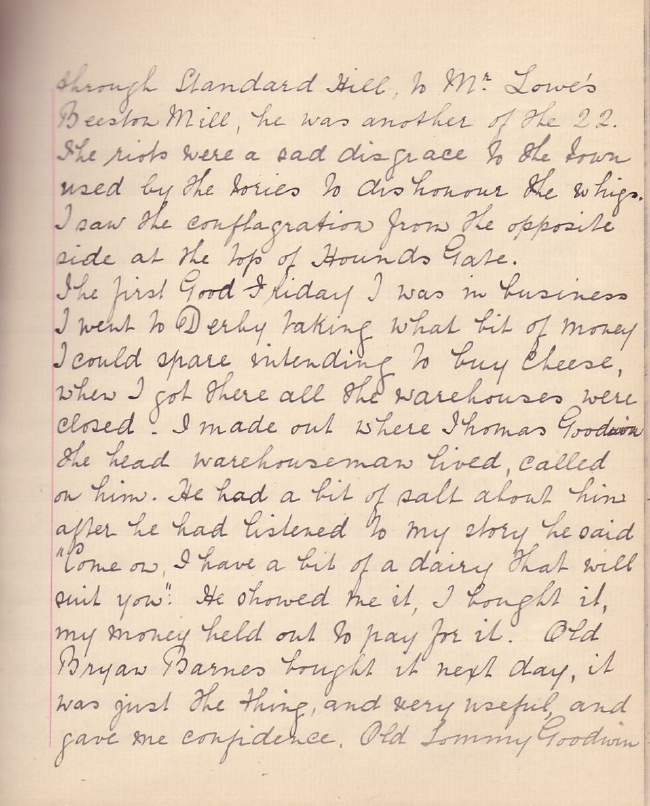 through Standard Hill, to Mr. Lowe's
Beeston Mill, he was another of the 22.
The riots were a sad disgrace to the town
used by the tories to dishonour the whigs.
I saw the conflagration from the opposite
side at the top of Hounds Gate.
The first Good Friday I was in business
I went to Derby taking what bit of money
I could spare intending to buy cheese,
when I got there all the warehouses were
closed. I made out where Thomas Goodwin
the head warehouseman lived, called
on him. He had a bit of salt about him
after he had listened to my story he said
"Come on, I have a bit of a dairy that will
suit you". He showed me it, I bought it,
my money held out to pay for it. Old
Bryan Barnes bought it next day, it
was just the thing, and very useful, and
gave me confidence. Old Tommy Goodwin